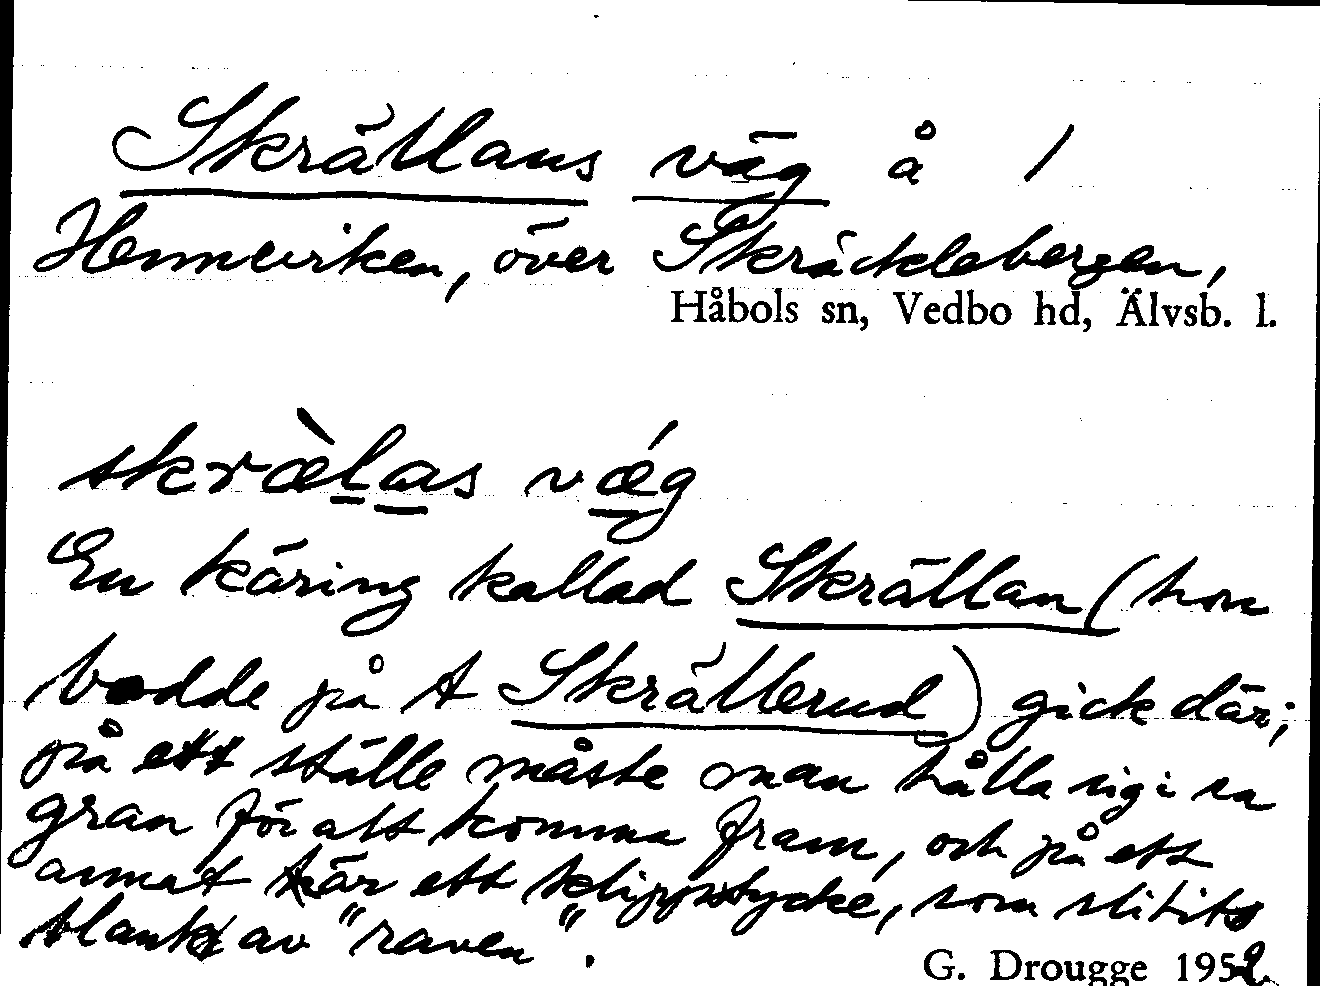 Skrällans väg å /
Henneviken, över Skräcklebergen,
Håbols sn, Vedbo hd, Älvsb. l.
skrælas væg
En käring kallad Skrällan (hon
bodde på t Skrällerud) gick där;
på ett ställe måste man hålla sig i en
gran för att komma fram, och på ett
annat är ett klippstycke, som slitits
blankt av "raven".
G. Drougge 1952